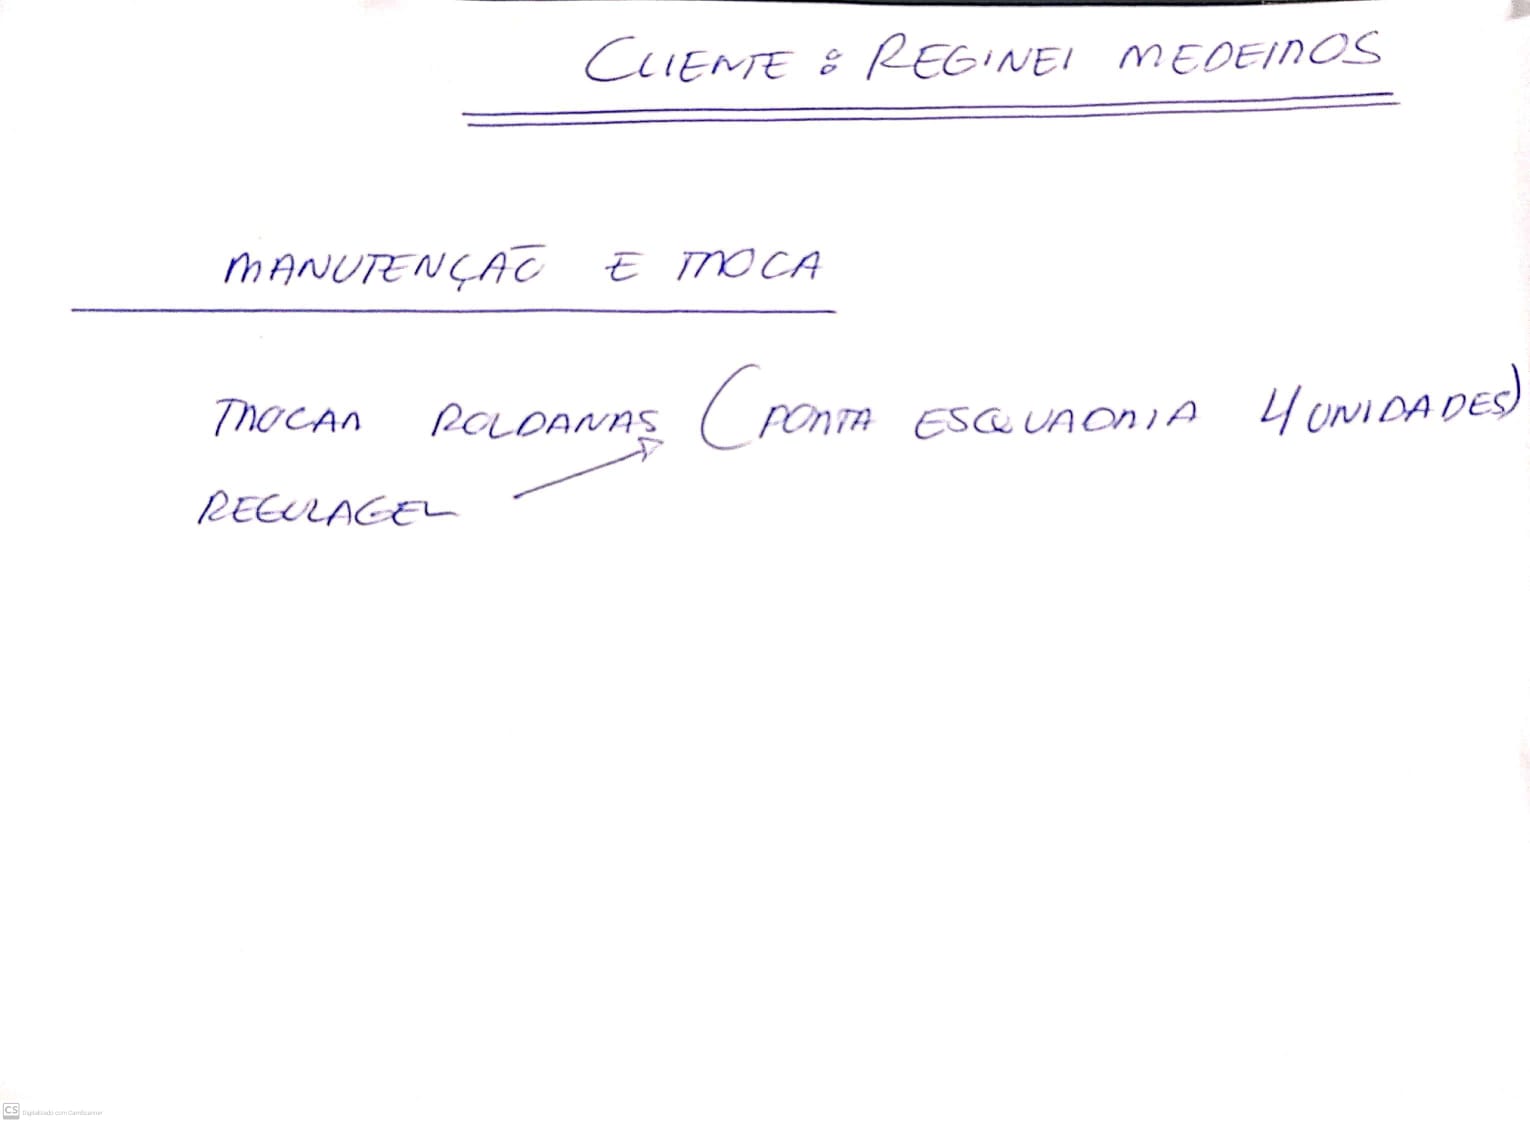 CLIENTE: REGINEI MEDEIROS
MANUTENÇÃO E TROCA
TROCAR ROLDANAS (PORTA ESQUADRIA 4 UNIDADES)
REGULAGEM
CS Digitalizado com CamScanner